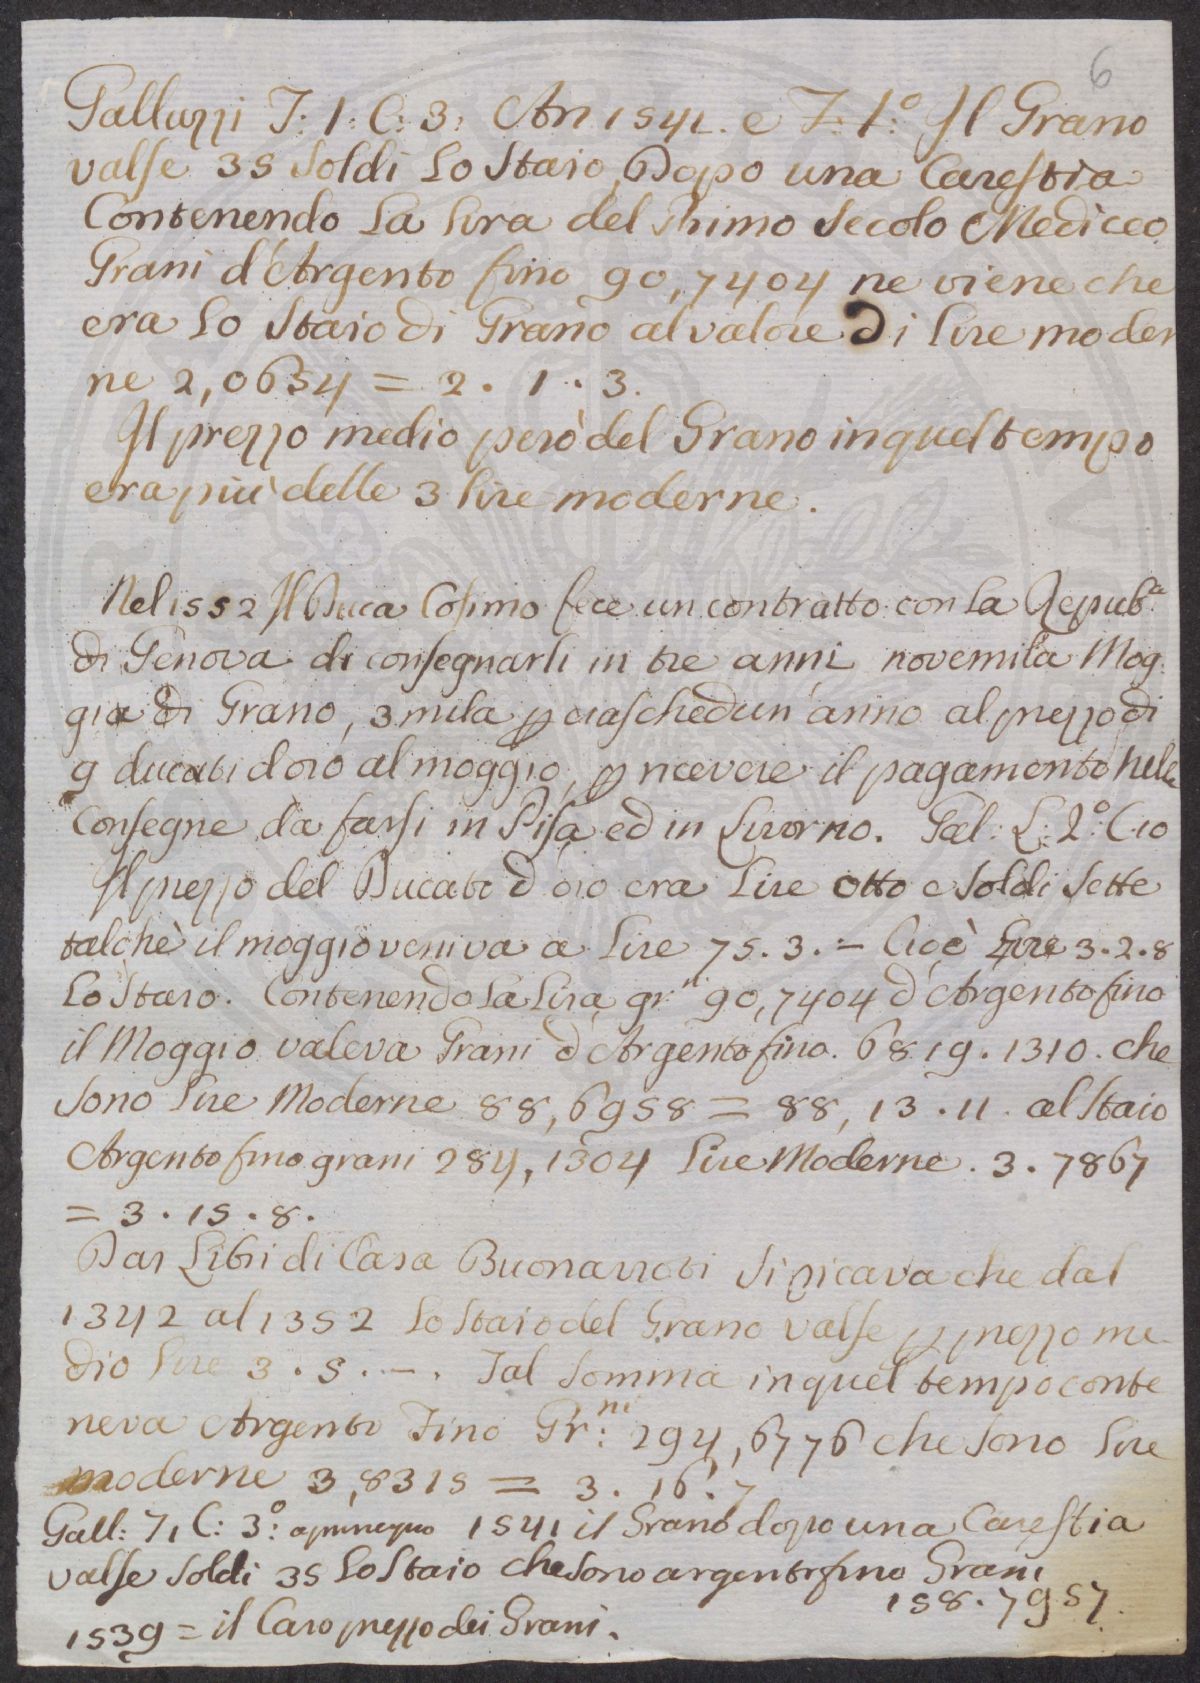 6
Galluzzi T: 1: C: 3: An 1541. e T: 1.° Il Grano
valse 35 Soldi Lo Staio, Dopo una Carestia
Contenendo La Lira del Primo Secolo Mediceo
Grani d'Argento fino 90,7404 ne viene che
era Lo Staio di Grano al valore di Lire moder
ne 2,0634 = 2. 1. 3.
Il prezzo medio però del Grano in quel tempo
era più delle 3 lire moderne.
Nel 1552 Il Duca Cosimo fece un contratto con La Repub.ca
di Genova di consegnarli in tre anni novemila Mog
gia di Grano, 3 mila p ciaschedun'anno al prezzo di
9 ducati d'oro al moggio, p ricevere il pagamento nelle
Consegne da farsi in Pisa ed in Livorno. Gal: L: 2.° C 10
Il prezzo del Ducato d'oro era Lire otto e Soldi Sette
talchè il moggio veniva a Lire 75. 3. – Cioè Lire 3. 2. 8
Lo Staio. Contenendo La Lira gr.ni 90,7404 d'Argento fino
il Moggio valeva Grani d'Argento fino. 6819. 1310. che
Sono Lire Moderne 88,6958 = 88, 13. 11. al Staio
Argento fino grani 284,1304 Lire Moderne. 3. 7867
= 3. 15. 8.
Dai Libri di Casa Buonarroti Si ricava che dal
1342 al 1352 Lo Staio del Grano valse p prezzo me
dio Lire 3. 5. –. Tal Somma in quel tempo conte
neva Argento Fino Gr.ni: 294,6776 che Sono Lire
moderne 3,8315 = 3. 16. 7
Gall: 7, C: 3.°: a principio 1541 il Grano dopo una Carestia
valse Soldi 35 Lo Staio che Sono argento fino Grani
158. 7957.
1539 = il Caro prezzo dei Grani.